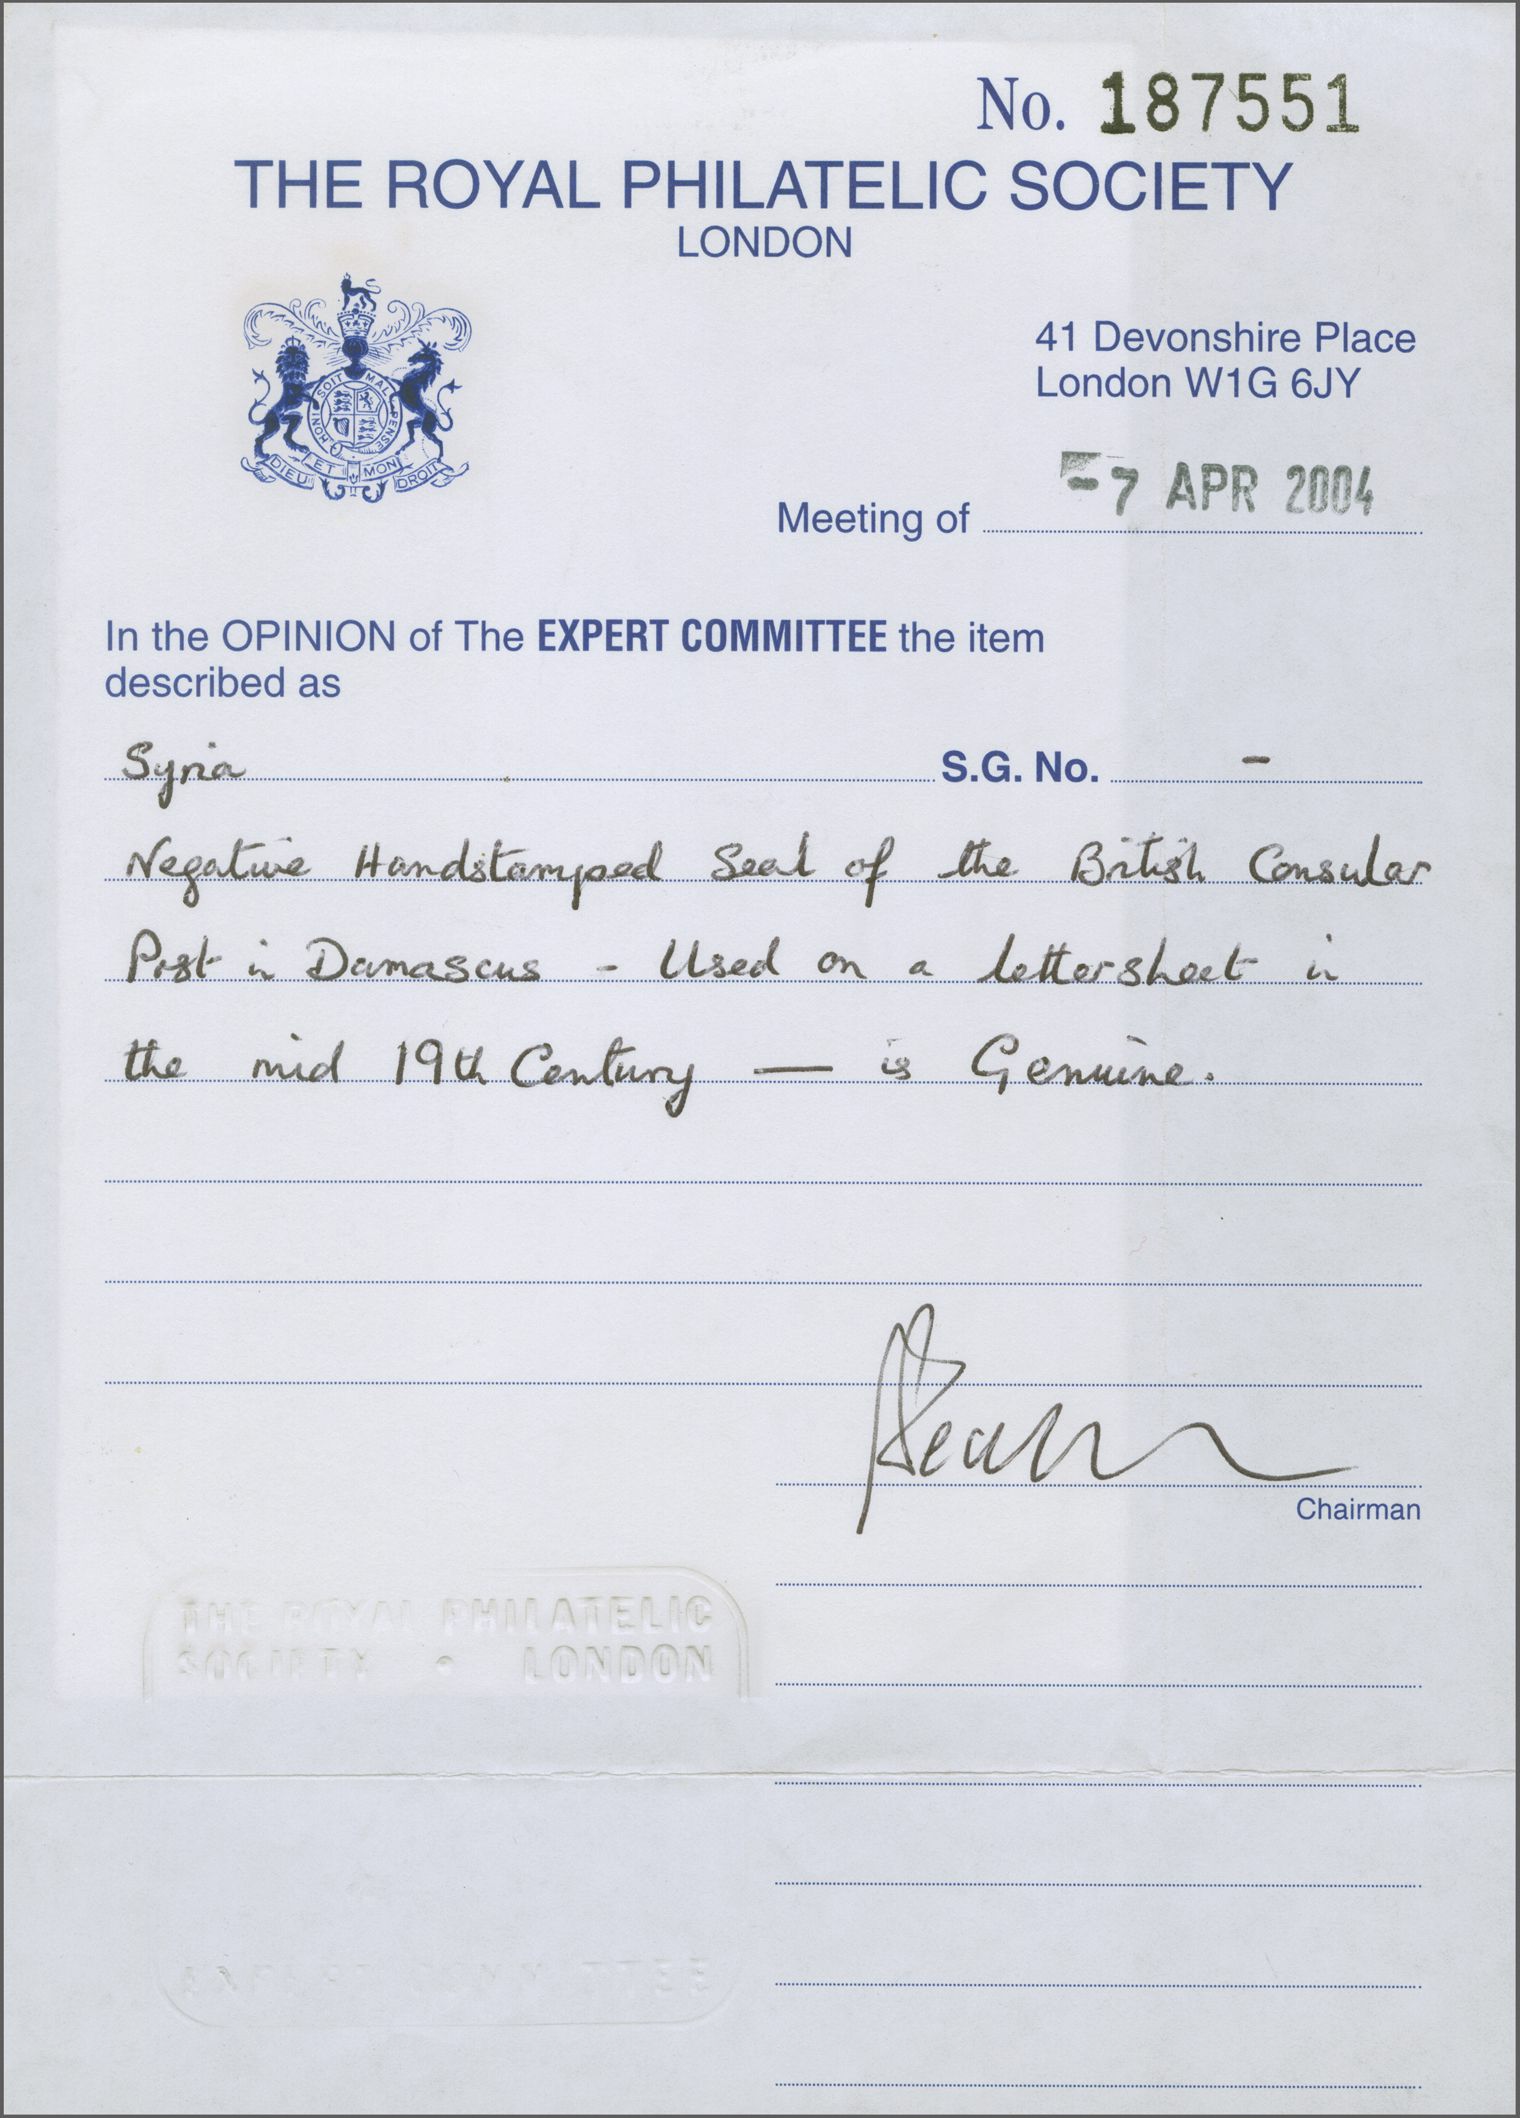 No. 187551
THE ROYAL PHILATELIC SOCIETY
LONDON
HONI SOIT MAL PENSE
DIEU ET MON DROIT
41 Devonshire Place
London W1G 6JY
Meeting of -7 APR 2004
In the OPINION of The EXPERT COMMITTEE the item
described as
Syria S.G. No. -
Negative Handstamped Seal of the British Consular
Post in Damascus - Used on a lettersheet in
the mid 19th Century — is Genuine.
Chairman
THE ROYAL PHILATELIC
SOCIETY • LONDON
EXPERT COMMITTEE